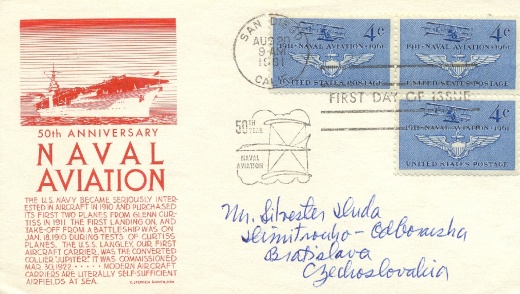 SAN DIEGO
AUG 20
9-AM
1961
CALIF.
4c
1911-NAVAL AVIATION-1961
UNITED STATES POSTAGE
4c
1911-NAVAL AVIATION-1961
UNITED STATES POSTAGE
FIRST DAY OF ISSUE
4c
1911-NAVAL AVIATION-1961
UNITED STATES POSTAGE
50TH
YEAR
NAVAL
AVIATION
50th ANNIVERSARY
NAVAL
AVIATION
THE U.S. NAVY BECAME SERIOUSLY INTER-
ESTED IN AIRCRAFT IN 1910 AND PURCHASED
ITS FIRST TWO PLANES FROM GLENN CUR-
TISS IN 1911. THE FIRST LANDING ON, AND
TAKE-OFF FROM A BATTLESHIP WAS ON
JAN. 18, 1910 DURING TESTS OF CURTISS
PLANES. THE U.S.S. LANGLEY, OUR FIRST
AIRCRAFT CARRIER, WAS THE CONVERTED
COLLIER "JUPITER." IT WAS COMMISSIONED
MAR. 30, 1922 ..... MODERN AIRCRAFT
CARRIERS ARE LITERALLY SELF-SUFFICIENT
AIRFIELDS AT SEA.
Mr. Silvester
Bratislava
Czechoslovakia